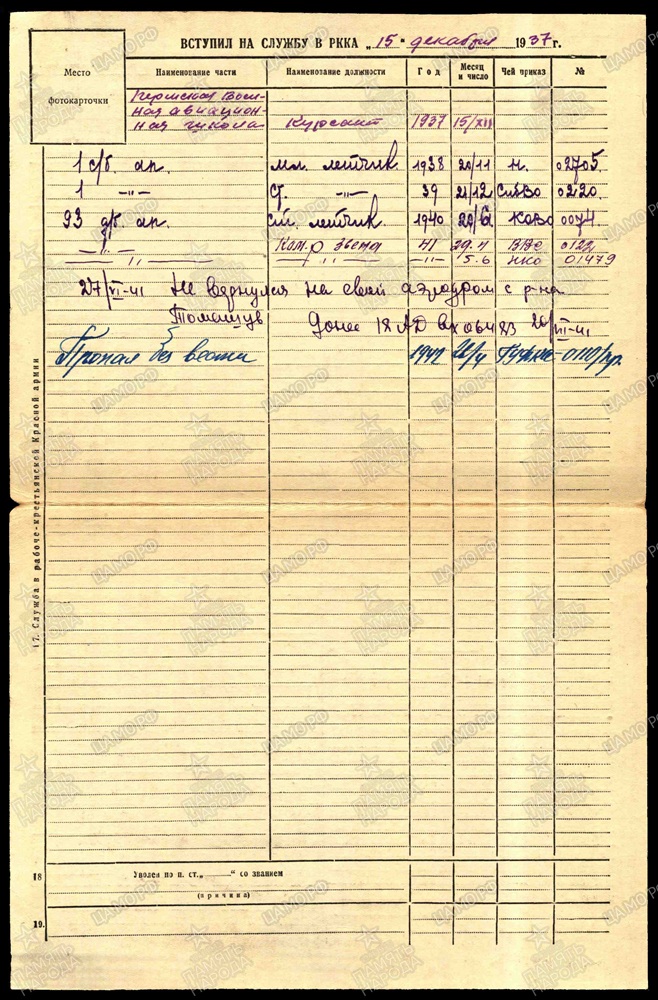 ВСТУПИЛ НА СЛУЖБУ В РККА „15“ декабря 1937 г.
Место фотокарточки
Наименование части Наименование должности Год Месяц и число Чей приказ №
Воен-
ная авиацион-
ная школа Курсант 1937 15/XII
1 с/б. ап. мл. летчик. 1938 20/11 н. 02705.
1 -„- ст. -„- 39 21/12 СибВО 0220.
93 д/б. ап. ст. летчик. 1940 20/6 КОВО 0074.
-„- Ком-р звена 41 29.4 ВВС 0122
-„- -„- -„- 5.6 НКО 01479
27/VI-41 Не вернулся на свой аэродром с р-на
Донес 18 АД вх 06483 20/VIII-41
Пропал без вести 1942 0110/пр.
17. Служба в рабоче-крестьянской Красной армии
18 Уволен по п. ст. „ “ со званием
(причина)
19.
ЦАМО РФ
ПАМЯТЬ НАРОДА